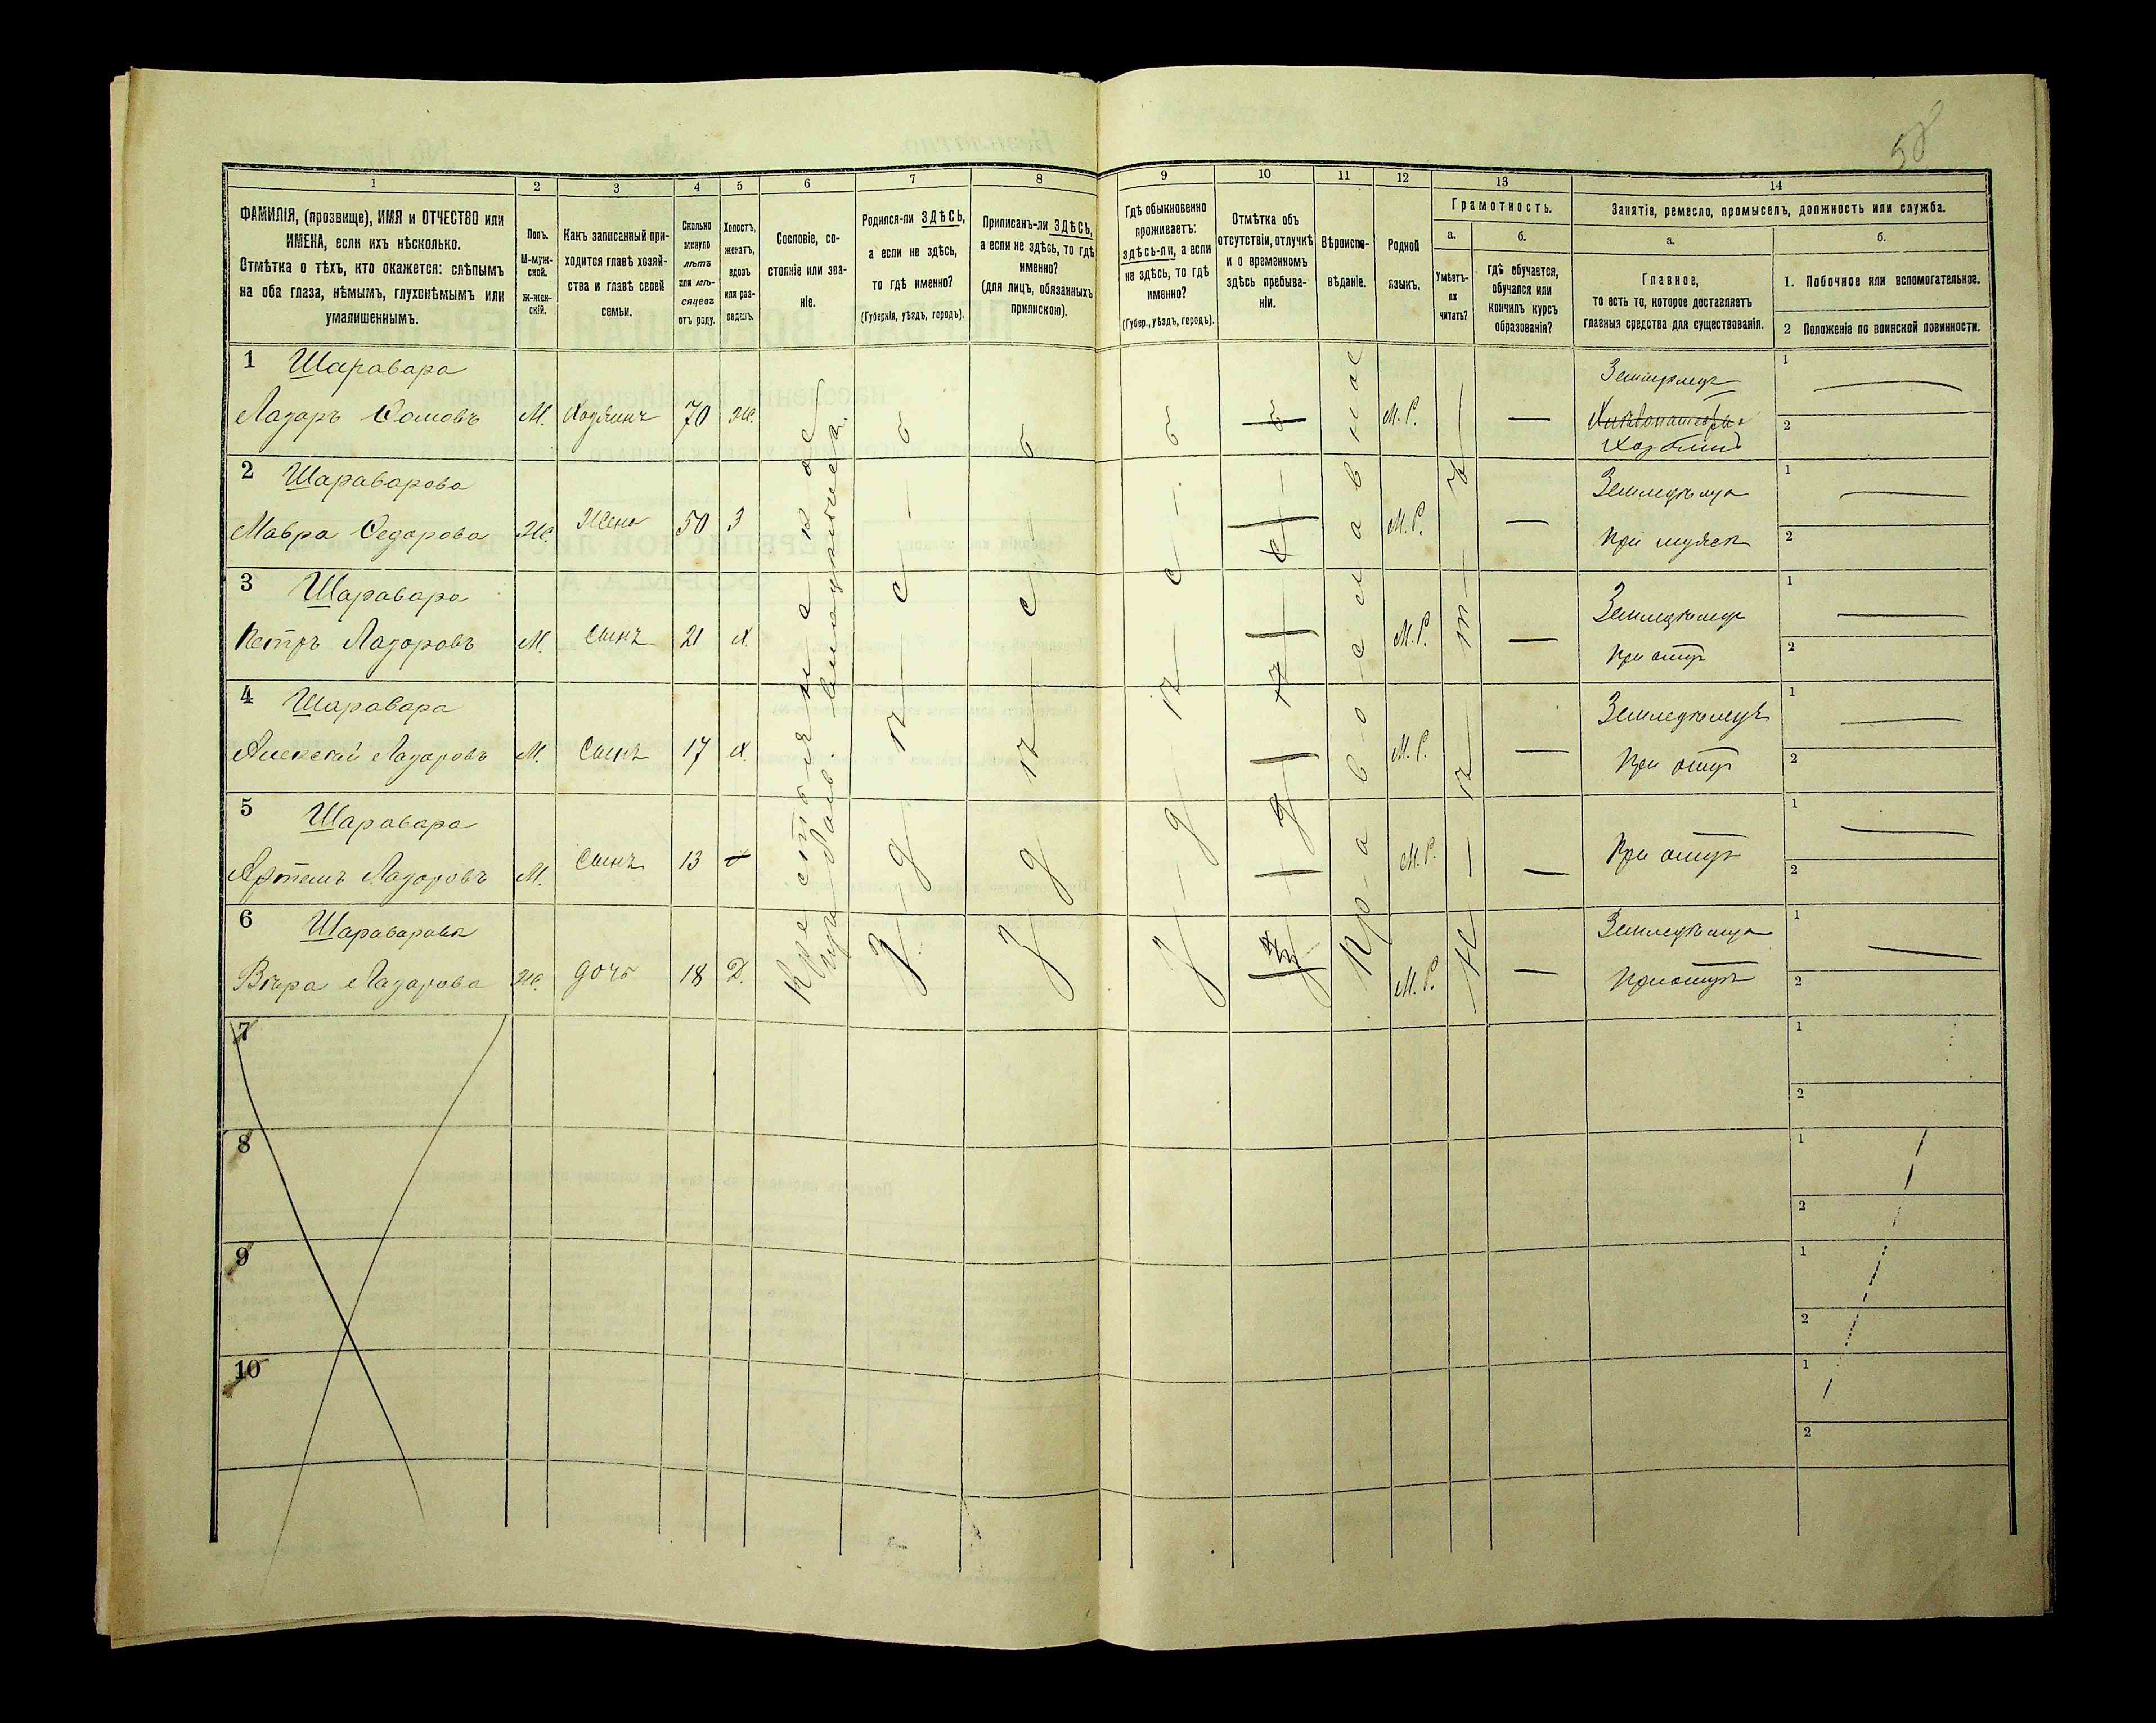 58
1 2 3 4 5 6 7 8 9 10 11 12 13 14
ФАМИЛІЯ, (прозвище), ИМЯ и ОТЧЕСТВО или
ИМЕНА, если ихъ нѣсколько.
Отмѣтка о тѣхъ, кто окажется: слѣпымъ
на оба глаза, нѣмымъ, глухонѣмымъ или
умалишеннымъ.
Полъ.
М-муж-
ской.
Ж-жен-
скій.
Какъ записанный при-
ходится главѣ хозяй-
ства и главѣ своей
семьи.
Сколько
минуло
лѣтъ
или мѣ-
сяцевъ
отъ роду.
Холостъ,
женатъ,
вдовъ
или раз-
веденъ.
Сословіе, со-
стояніе или зва-
ніе.
Родился-ли ЗДѢСЬ,
а если не здѣсь,
то гдѣ именно?
(Губернія, уѣздъ, городъ).
Приписанъ-ли ЗДѢСЬ,
а если не здѣсь, то гдѣ
именно?
(для лицъ, обязанныхъ
припискою).
Гдѣ обыкновенно
проживаетъ:
здѣсь-ли, а если
не здѣсь, то гдѣ
именно?
(Губер., уѣздъ, городъ).
Отмѣтка объ
отсутствіи, отлучкѣ
и о временномъ
здѣсь пребыва-
ніи.
Вѣроиспо-
вѣданіе.
Родной
языкъ.
Грамотность.
а.
Умѣетъ-
ли
читать?
б.
гдѣ обучается,
обучался или
кончилъ курсъ
образованія?
Занятія, ремесло, промыселъ, должность или служба.
а.
Главное,
то есть то, которое доставляетъ
главныя средства для существованія.
б.
1. Побочное или вспомогательное.
2 Положеніе по воинской повинности.
1 Шаравара
Лазаръ Ѳомовъ М. Хозяинъ 70 Ж. М. Р.
Земледѣлецъ
Хозяинъ
1
2
2 Шараварова
Мавра Ѳедорова Ж. Жена 50 З М. Р.
Земледѣлица
При мужѣ
1
2
3 Шаравара
Петръ Лазаровъ М. Сынъ 21 Х. М. Р.
Земледѣлецъ
При отцѣ
1
2
4 Шаравара
Алексѣй Лазаровъ М. Сынъ 17 Х. М. Р.
Земледѣлецъ
При отцѣ
1
2
5 Шаравара
Артемъ Лазаровъ М. Сынъ 13 М. Р.
При отцѣ
1
2
6 Шараварова
Вѣра Лазарова Ж. дочь 18 Д. М. Р.
Земледѣлица
При отцѣ
1
2
Крестьянское
Здѣсь
Здѣсь
Здѣсь
Здѣсь
Православное
Нѣтъ
7
1
2
8
1
2
9
1
2
10
1
2